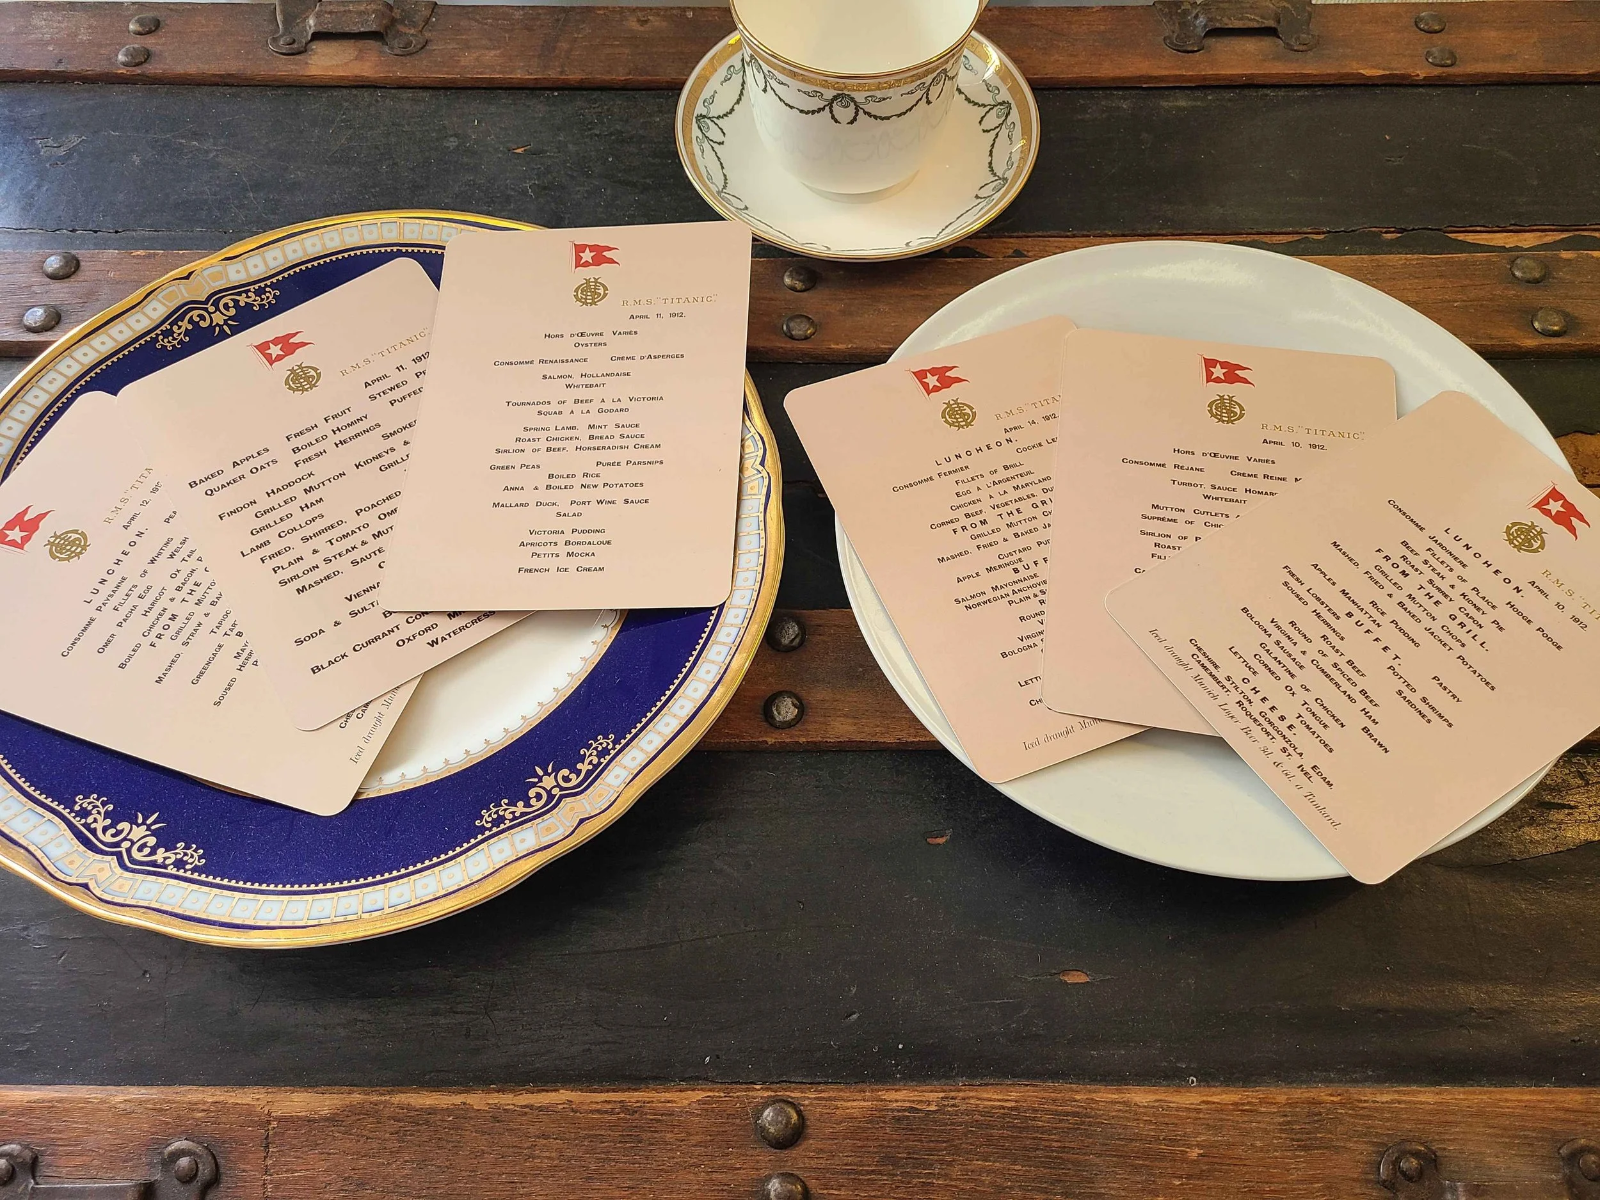 R.M.S. "TITA
APRIL 12, 191
LUNCHEON.
CONSOMME PAYSANNE PEA
FILLETS OF WHITING
OMER PACHA EGG WELSH
HARICOT OX TAIL
BOILED CHICKEN & BACON,
FROM THE G
GRILLED MUTTO
MASHED, STRAW & BA
TAPIOC
GREENGAGE TAR
B
MAY
SOUSED HERR
CHE
CA
Iced draught Mun
R.M.S. "TITANIC"
APRIL 11, 1912
FRESH FRUIT STEWED P
BAKED APPLES
QUAKER OATS BOILED HOMINY PUFFED
FRESH HERRINGS
FINDON HADDOCK SMOKE
GRILLED MUTTON KIDNEYS &
GRILLED HAM GRILLE
LAMB COLLOPS
FRIED, SHIRRED, POACHED
PLAIN & TOMATO OM
SIRLOIN STEAK & MUT
MASHED, SAUTE
VIENNA
SODA & SULTA
B
BLACK CURRANT CON
OXFORD M
WATERCRESS
R.M.S. "TITANIC."
APRIL 11, 1912.
HORS D'ŒUVRE VARIÉS
OYSTERS
CONSOMMÉ RENAISSANCE CRÈME D'ASPERGES
SALMON, HOLLANDAISE
WHITEBAIT
TOURNADOS OF BEEF À LA VICTORIA
SQUAB À LA GODARD
SPRING LAMB, MINT SAUCE
ROAST CHICKEN, BREAD SAUCE
SIRLION OF BEEF, HORSERADISH CREAM
GREEN PEAS PURÉE PARSNIPS
BOILED RICE
ANNA & BOILED NEW POTATOES
MALLARD DUCK, PORT WINE SAUCE
SALAD
VICTORIA PUDDING
APRICOTS BORDALOUE
PETITS MOCKA
FRENCH ICE CREAM
R.M.S. "TITA
APRIL 14, 1912.
LUNCHEON.
CONSOMMÉ FERMIER COCKIE LE
FILLETS OF BRILL
EGG À L'ARGENTEUIL
CHICKEN À LA MARYLAND
CORNED BEEF, VEGETABLES, DU
FROM THE GRI
GRILLED MUTTON C
MASHED, FRIED & BAKED JA
CUSTARD PU
APPLE MERINGUE
BUFF
SALMON MAYONNAISE
NORWEGIAN ANCHOVIE
PLAIN & S
ROUND
VIRGIN
BOLOGNA
LETT
CH
Iced draught Mun
R.M.S. "TITANIC."
APRIL 10, 1912.
HORS D'ŒUVRE VARIES
CONSOMMÉ REJANE CRÈME REINE M
TURBOT, SAUCE HOMAR
WHITEBAIT
MUTTON CUTLETS
SUPRÊME OF CHIC
SIRLION OF B
ROAST
FIL
CA
R.M.S. "T
APRIL 10, 1912.
LUNCHEON.
CONSOMMÉ JARDINIERE HODGE PODGE
FILLETS OF PLAICE
BEEF STEAK & KIDNEY PIE
ROAST SURREY CAPON
FROM THE GRILL.
GRILLED MUTTON CHOPS
MASHED, FRIED & BAKED JACKET POTATOES
RICE PUDDING
APPLES MANHATTAN PASTRY
BUFFET.
FRESH LOBSTERS POTTED SHRIMPS
SOUSED HERRINGS SARDINES
ROAST BEEF
ROUND OF SPICED BEEF
VIRGINIA & CUMBERLAND HAM
BOLOGNA SAUSAGE BRAWN
GALANTINE OF CHICKEN
CORNED OX TONGUE
LETTUCE TOMATOES
CHEESE.
CHESHIRE, STILTON, GORGONZOLA, EDAM,
CAMEMBERT, ROQUEFORT, ST. IVEL.
Iced draught Munich Lager Beer 3d. & 6d. a Tankard.